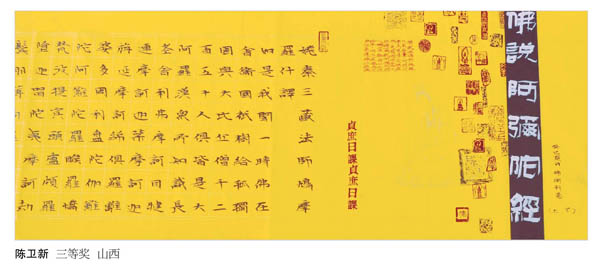 佛說阿彌陀經
貞庶日課貞庶日課
姚秦三藏法師鳩摩
羅什譯
如是我聞一時佛在
舍衛國祇樹給孤獨
園與大比丘僧千二
百五十人俱皆是大
阿羅漢眾所知識長
老舍利弗摩訶目犍
連摩訶迦葉摩訶迦
旃延摩訶俱絺羅離
婆多周利槃陀伽難
陀阿難陀羅睺羅憍
梵波提賓頭盧頗羅
墮迦留陀夷摩訶劫
陈卫新 三等奖 山西